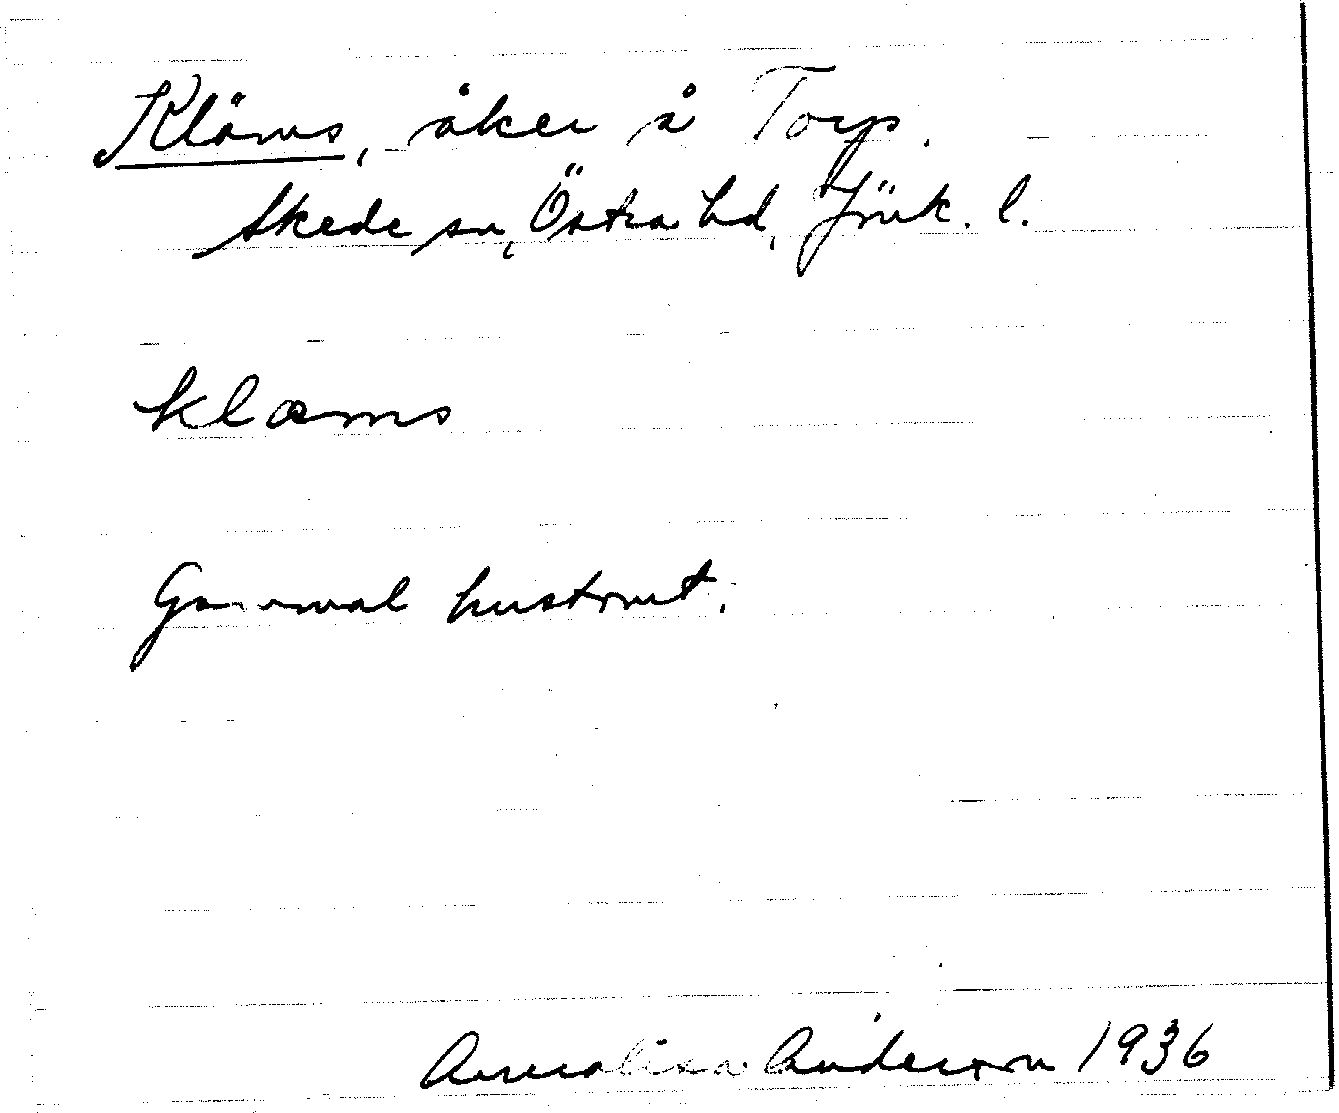 Kläms, åker å Torp.
Skede sn, Östra hd, Jönk. l.
klæms
Gammal hustomt.
Annalisa Anderson 1936